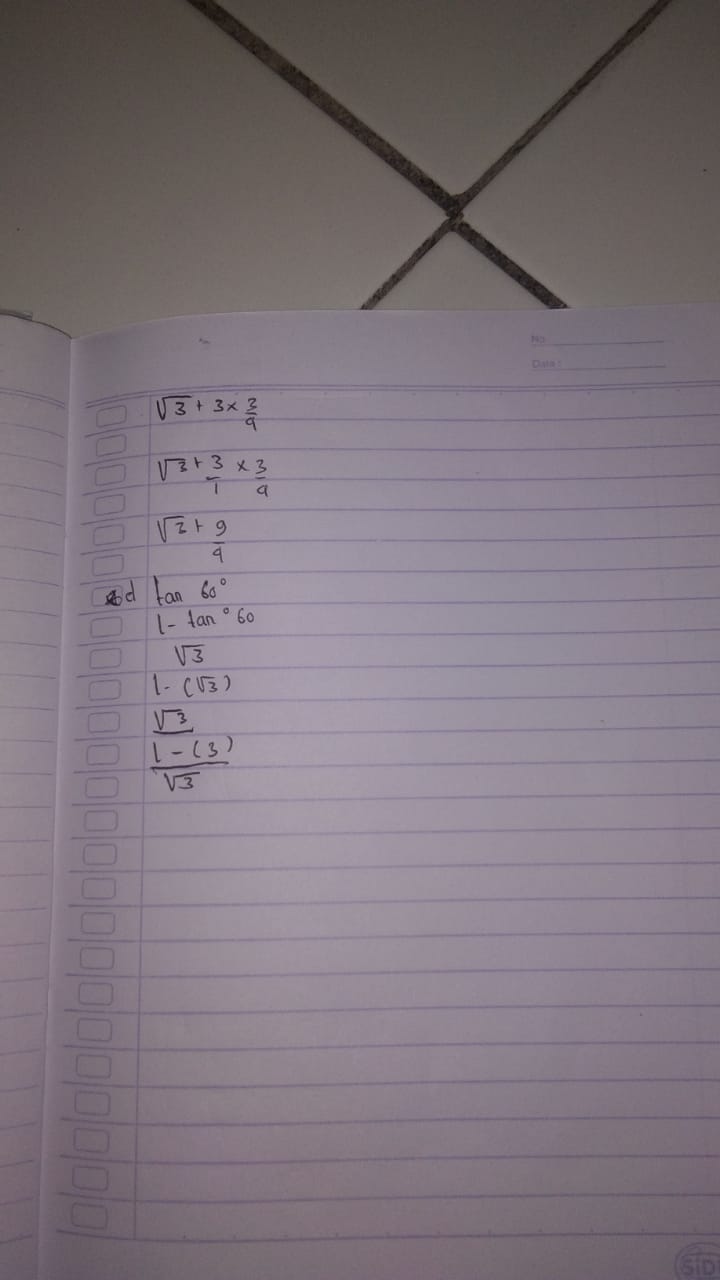 No.
Date :
√3 + 3 × 3/4
√3 + 3/1 × 3/4
√3 + 9/4
d tan 60°
1 - tan ° 60
√3
1 - (√3)
√3
1 - (3)
√3
SiD